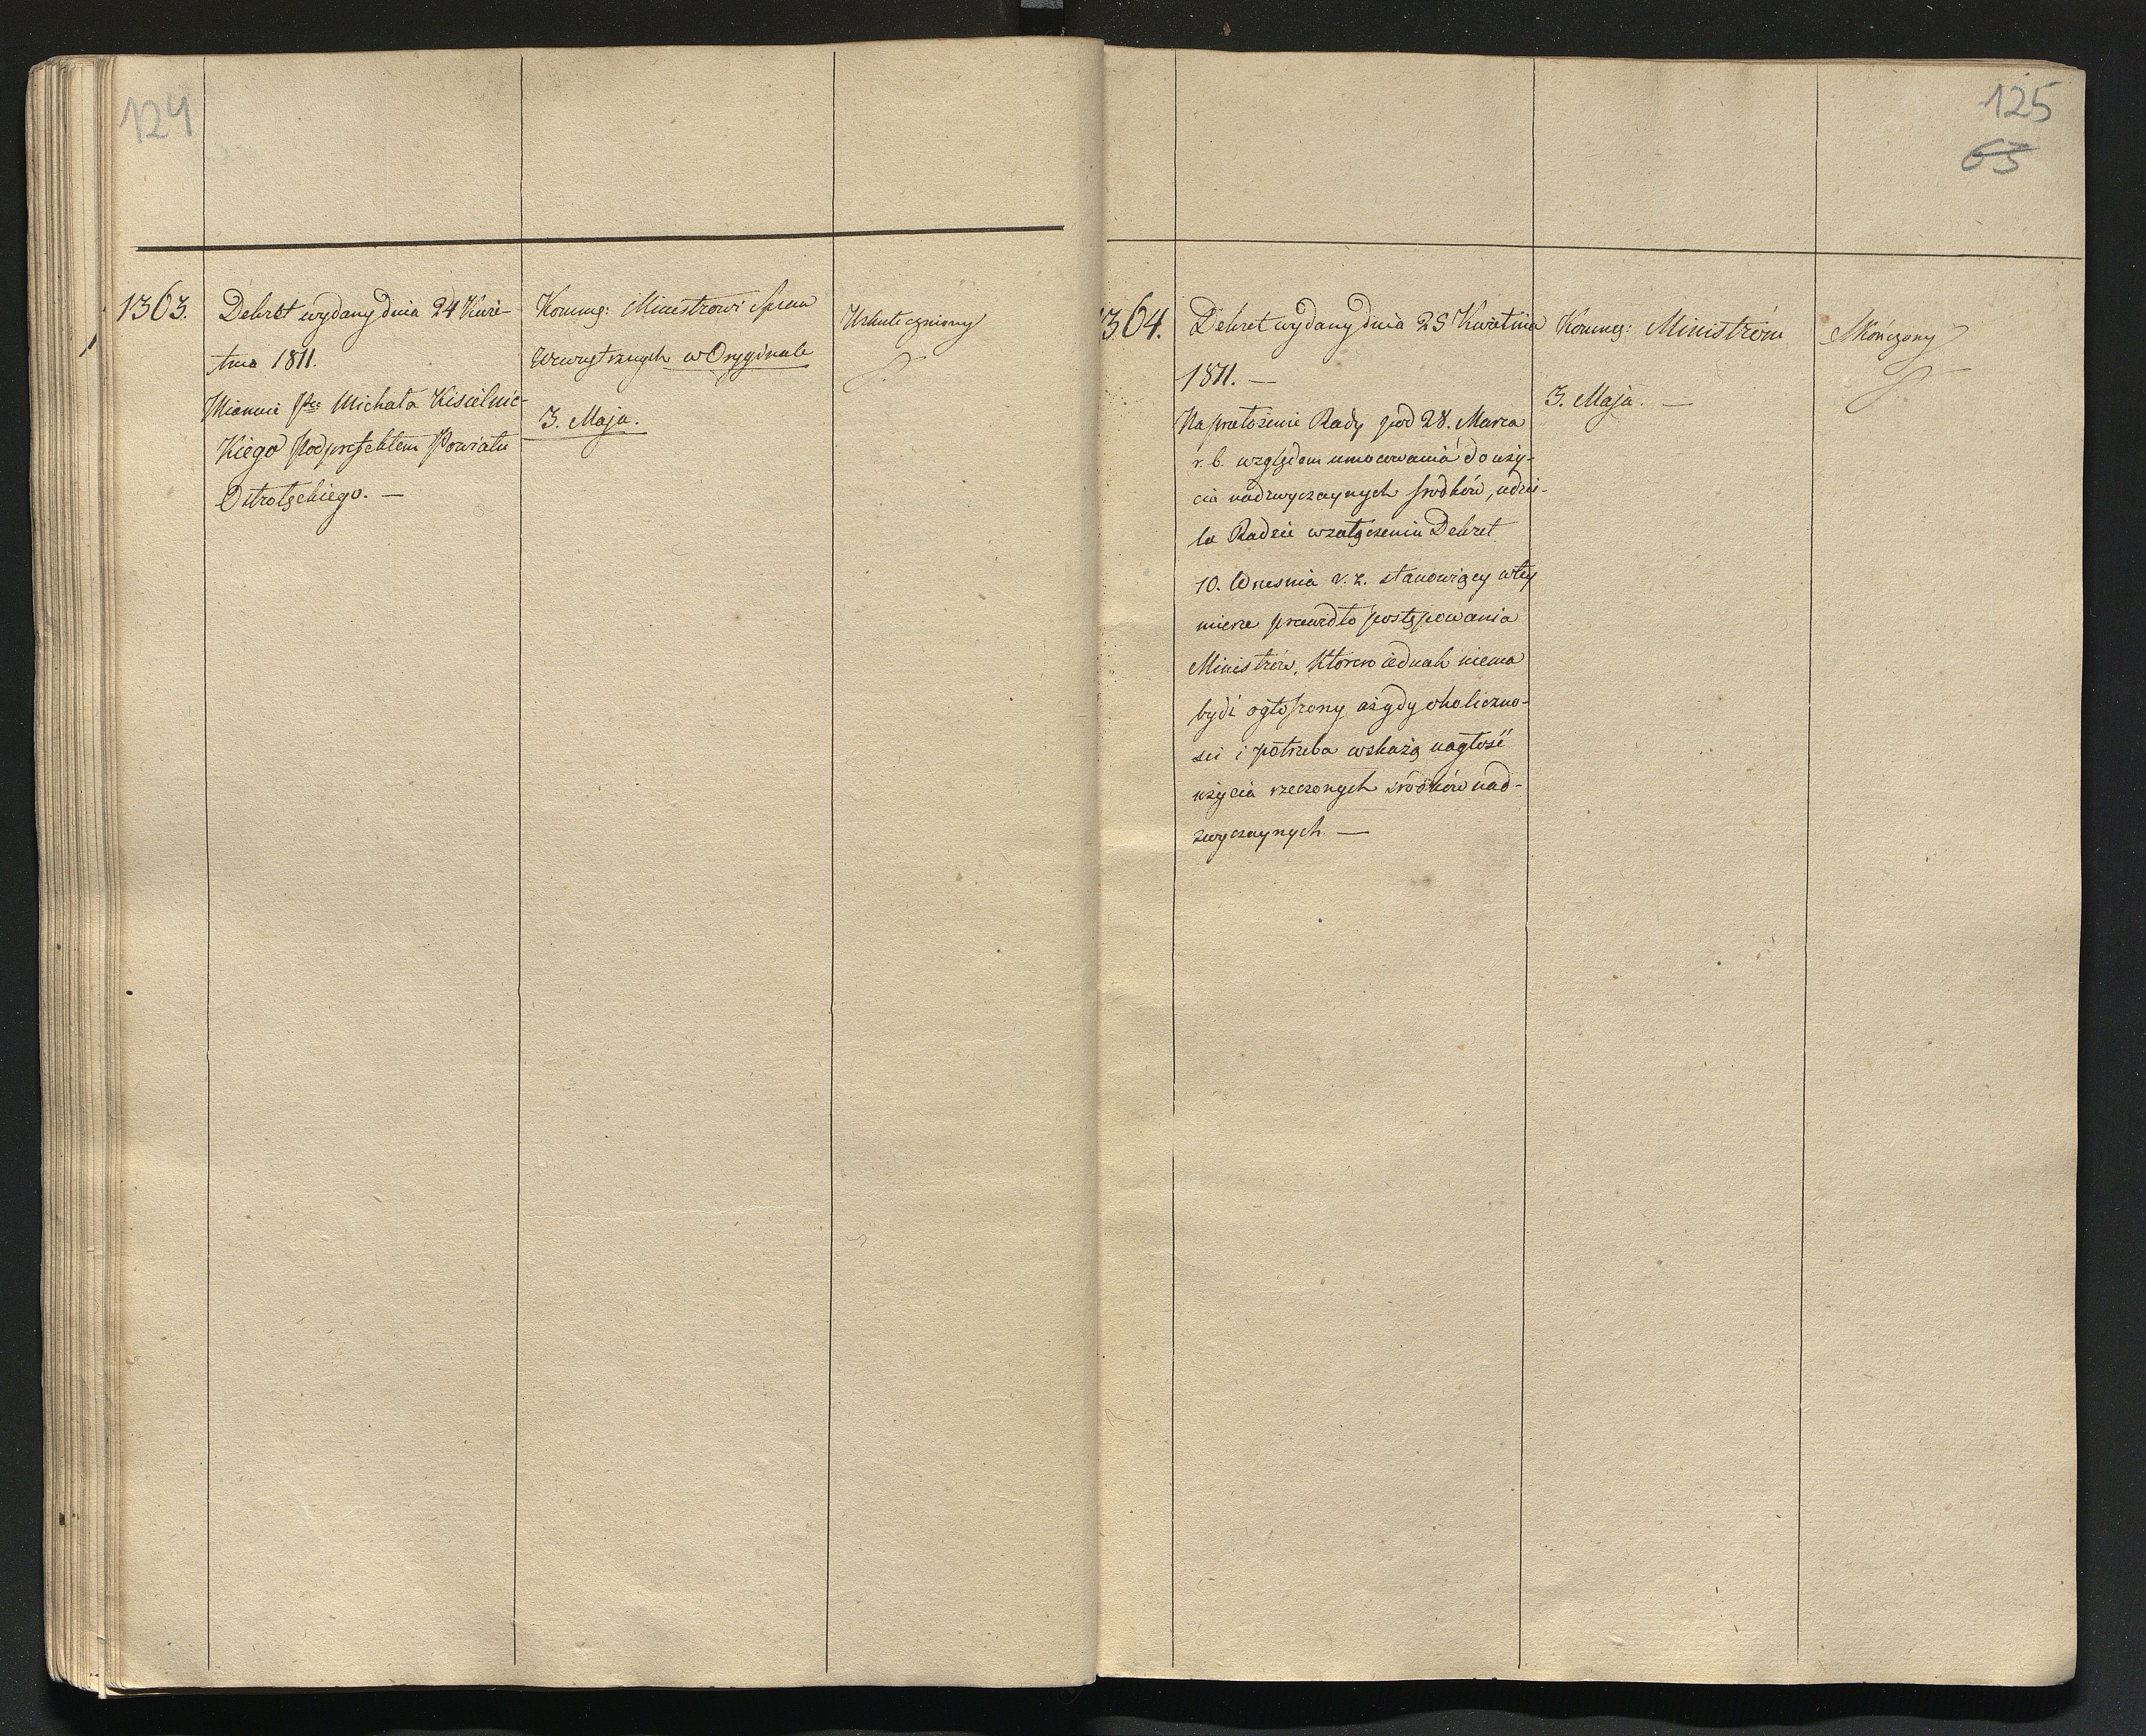 124
1363.
Dekret wydany dnia 24 Kwie-
tnia 1811.
Mianuie Pna Michała Kisielnic-
kiego Podprefektem Powiatu
Ostrołęckiego. —
Kommg: Ministrowi Spraw
Wewnętrznych w Oryginale
3. Maja.
Uskuteczniony
125
63
1364.
Dekret wydany dnia 25 Kwietnia
1811. —
Na przełożenie Rady pod 28. Marca
r. b. względem umocowania do uży-
cia nadzwyczaynych srodków, udzie-
la Radzie w załączeniu Dekret
10. Wrzesnia r. z. stanowiący w tey
mierze prawidło postępowania
Ministrów, który iednak niema
bydź ogłoszony aż gdy okoliczno-
sci i potrzeba wskażą nagłość
użycia rzeczonych srodków nad-
zwyczaynych. —
Kommg: Ministrom
3. Maja. —
Skończony